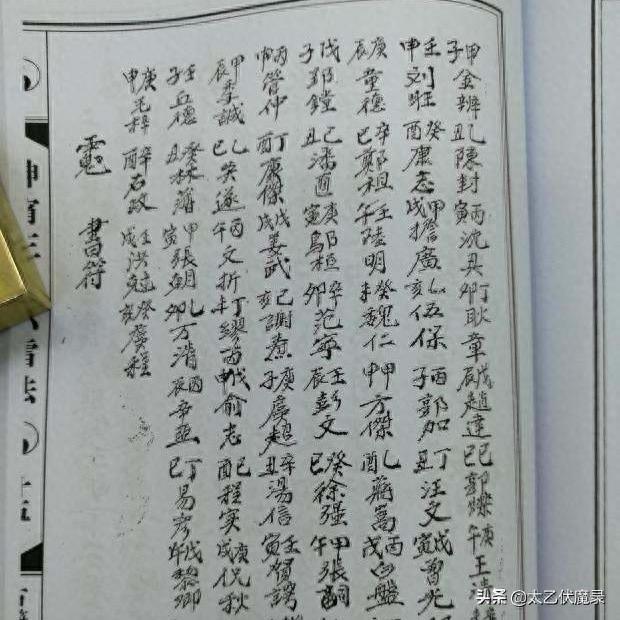 甲子金辨乙丑陳封丙寅沈興丁卯耿章戊辰趙達己巳郭燦庚午王清
壬申刘旺癸酉康志甲戌擔廣乙亥伍保丙子郭加丁丑汪文戊寅曾光
庚辰童德辛巳鄭祖壬午陸明癸未魏仁甲申方傑乙酉蔣嵩丙戌白盤
戊子郢鏜己丑潘庚寅鄔桓辛卯范寧壬辰彭文癸巳徐强甲午張嗣
丙申管仲丁酉康傑戊戌姜武己亥謝燾庚子虞起辛丑湯信壬寅賀諤
甲辰李誠乙巳吴遂丙午文折丁未繆丙戊申俞志己酉程寅庚戌倪秋
壬子丘德癸丑林薄甲寅張朝乙卯万清丙辰辛亞丁巳易彦戊午黎卿
庚申毛梓辛酉石政壬戌洪癸亥虞程
書符
十五
头条 @太乙伏魔录